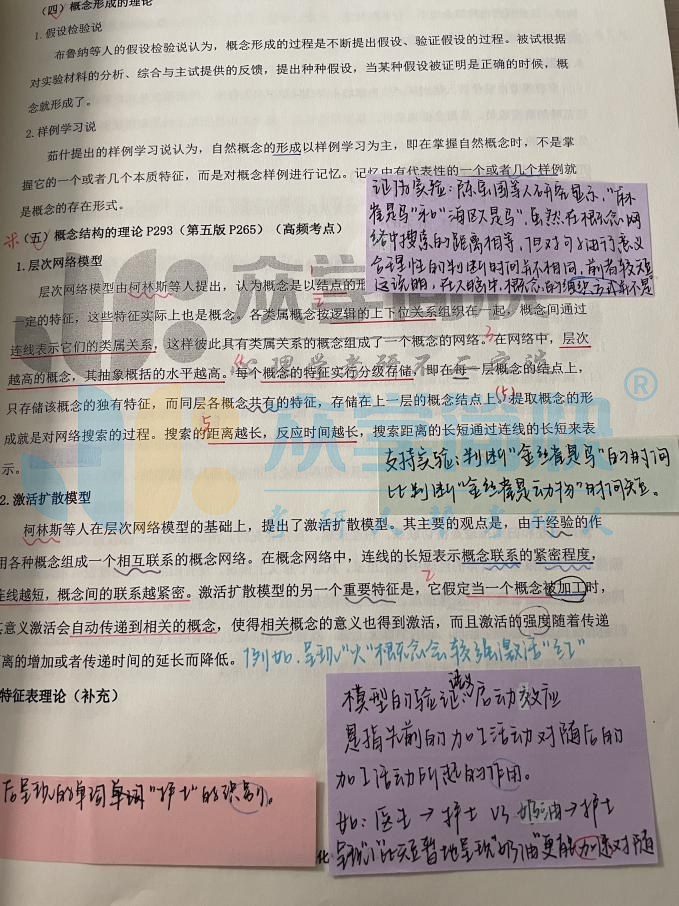 （四）概念形成的理论
1.假设检验说
布鲁纳等人的假设检验说认为，概念形成的过程是不断提出假设、验证假设的过程。被试根据
对实验材料的分析、综合与主试提供的反馈，提出种种假设，当某种假设被证明是正确的时候，概
念就形成了。
2.样例学习说
茹什提出的样例学习说认为，自然概念的形成以样例学习为主，即在掌握自然概念时，不是掌
握它的一个或者几个本质特征，而是对概念样例进行记忆。记忆中有代表性的一个或者几个样例就
是概念的存在形式。
证伪实验：陈 等人研究显示，“麻
雀是鸟”和“海鸥是鸟”，虽然在概念网
络中搜索的距离相等，但对句子进行意义
合理性的判断时间并不相同，前者较短
这说明，在人脑中，概念的组织方式并不是
米（五）概念结构的理论 P293（第五版 P265）（高频考点）
1.层次网络模型
层次网络模型由柯林斯等人提出，认为概念是以结点的形
一定的特征，这些特征实际上也是概念。各类属概念按逻辑的上下位关系组织在一起，概念间通过
连线表示它们的类属关系，这样彼此具有类属关系的概念组成了一个概念的网络。3在网络中，层次
越高的概念，其抽象概括的水平越高。4每个概念的特征实行分级存储，即在每一层概念的结点上，
只存储该概念的独有特征，而同层各概念共有的特征，存储在上一层的概念结点上。(5)提取概念的形
成就是对网络搜索的过程。搜索的距离越长，反应时间越长，搜索距离的长短通过连线的长短来表
示。
支持实验：判断“金丝雀是鸟”的时间
比判断“金丝雀是动物”时间短。
2.激活扩散模型
柯林斯等人在层次网络模型的基础上，提出了激活扩散模型。其主要的观点是，由于经验的作
用各种概念组成一个相互联系的概念网络。在概念网络中，连线的长短表示概念联系的紧密程度，
连线越短，概念间的联系越紧密。激活扩散模型的另一个重要特征是，2它假定当一个概念被加工时，
其意义激活会自动传递到相关的概念，使得相关概念的意义也得到激活，而且激活的强度随着传递
距离的增加或者传递时间的延长而降低。例如.呈现“火”概念会较强激活“红”
特征表理论（补充）
模型的验证：语义启动效应
是指先前的加工活动对随后的
加工活动所起的作用。
如：医生→护士 VS 奶油→护士
呈现“ ”比短暂地呈现“奶油”更能加速对随
后呈现的单词单词“护士”的识别。
众学简快
心理学考研不二宗谈
考研人帮考研人
®